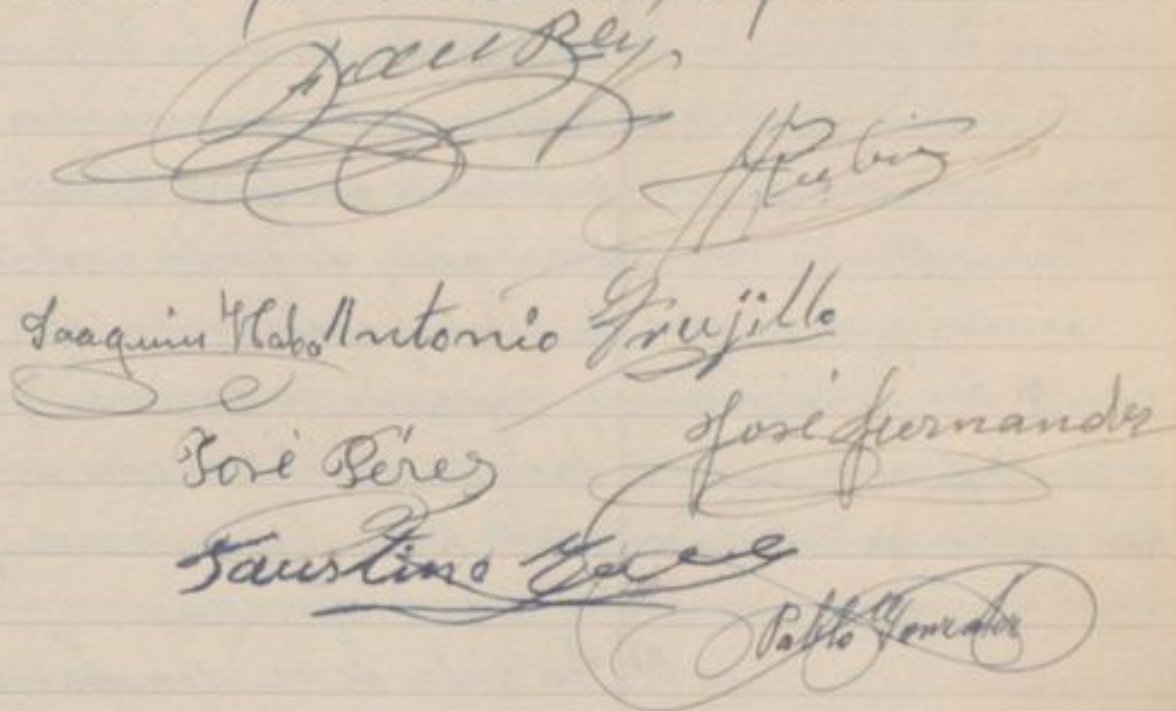 Rey
Rubio
Joaquin Antonio Trujillo
José Pérez
José Fernandez
Faustino
Pablo Gonzalez